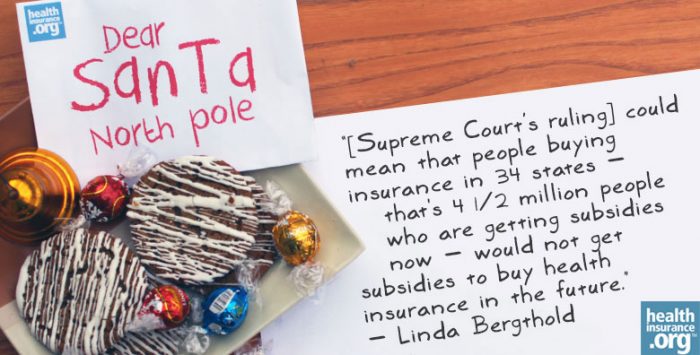 health
insurance
.org™
Dear
Santa
North pole
"[Supreme Court's ruling] could
mean that people buying
insurance in 34 states –
that's 4 1/2 million people
who are getting subsidies
now – would not get
subsidies to buy health
insurance in the future."
– Linda Bergthold
health
insurance
.org™